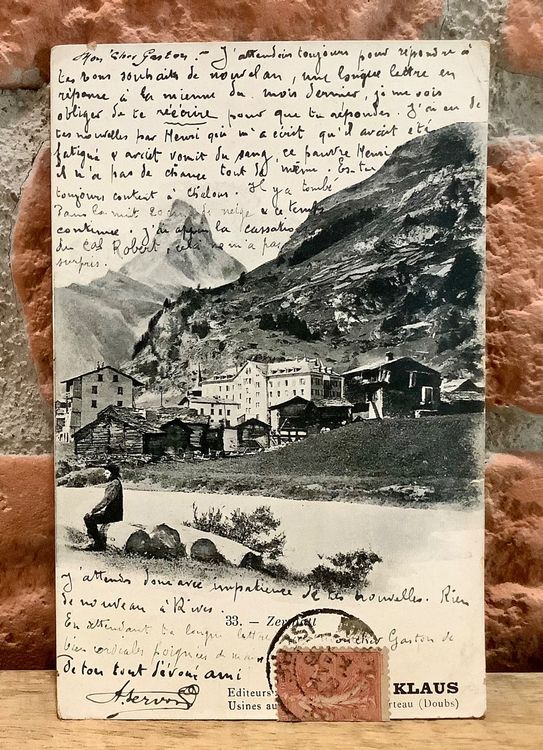 Mon cher Gaston. - J'attendais toujours pour répondre à
tes bons souhaits de nouvel an, une longue lettre en
réponse à la mienne du mois dernier, je me vois
obliger de te réécrire pour que tu répondes. J'ai eu de
tes nouvelles par Henri qui m'a écrit qu'il avait été
fatigué & avait vomit du sang, ce pauvre Henri
il n'a pas de chance tout de même. Es-tu
toujours content à Chalons. Il y a tombé
Dans la nuit de neige & ce temps
continue. J'ai appris la cassation
du Cal Robert, cela ne m'a pas
surpris.
J'attends donc avec impatience de tes nouvelles. Rien
de nouveau à Rives.
33. - Zermatt
En attendant ta longue lettre cher Gaston de
bien cordiales poignées de main
de ton tout dévoué ami
A. Servoz
Editeurs KLAUS
Usines au rteau (Doubs)